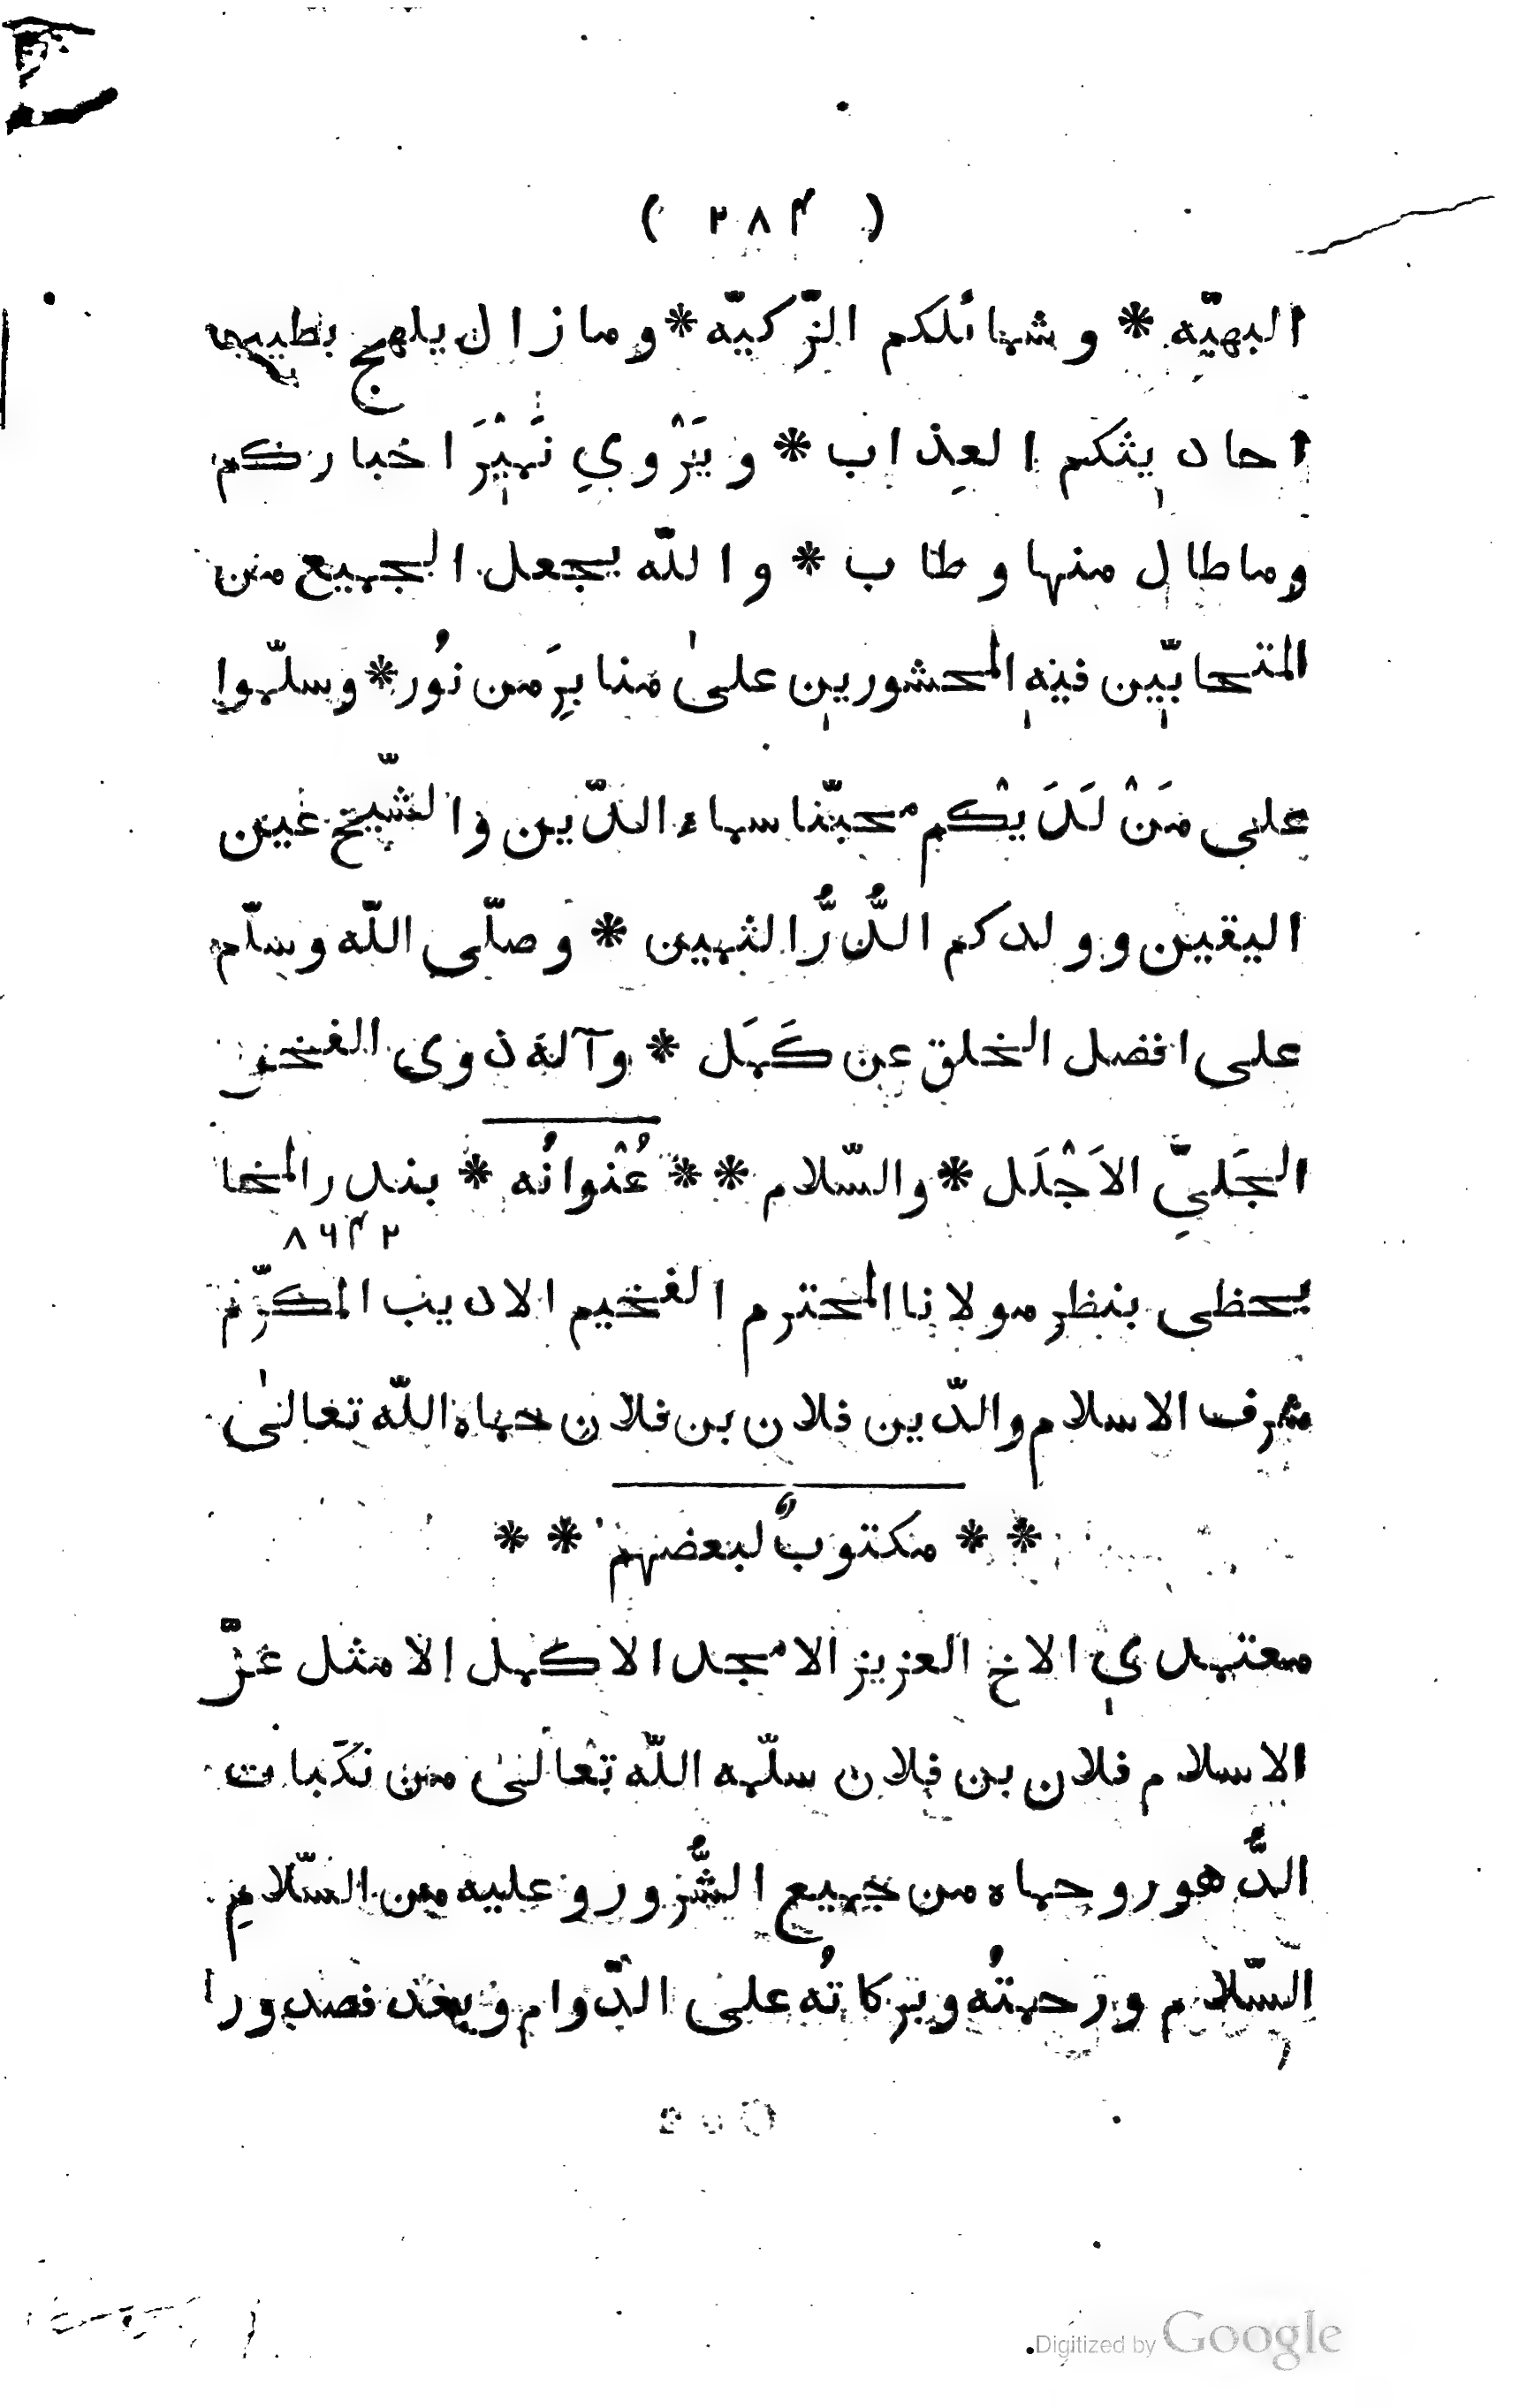 ( ٢٨٤ )
البهيّه * وشمائلكم الزّكيّه * وما زال يلهج بطيب
احاديثكم العِذاب * ويَرْوي نَمِيْرَ اخباركم
وماطال منها وطاب * والله يجعل الجميع من
المتحابّين فيه المحشورين على منابِرَ من نُور * وسلّموا
على مَنْ لَدَيْكم محبّنا سماء الدّين والشّيخ عين
اليقين وولدكم الدُّرُّ الثمين * وصلّى الله وسلّم
على افضل الخلق عن كَمَل * وآله ذوي الفخر
الجَليّ الاَجْلَل * والسّلام * * عُنْوانُه * بندر المخا
٨٦٤٢
يحظى بنظر مولانا المحترم الفخيم الاديب المكرّم
شرف الاسلام والدّين فلان بن فلان حماه الله تعالى
* * مكتوبٌ لبعضهم * *
معتمدي الاخ العزيز الامجد الاكمل الامثل عزّ
الاسلام فلان بن فلان سلّمه الله تعالى من نكبات
الدُّهور وحماه من جميع الشُّرور وعليه من السّلام
السّلام ورحمتُه وبركاتُه على الدّوام وبعد فصدورا
Digitized by Google